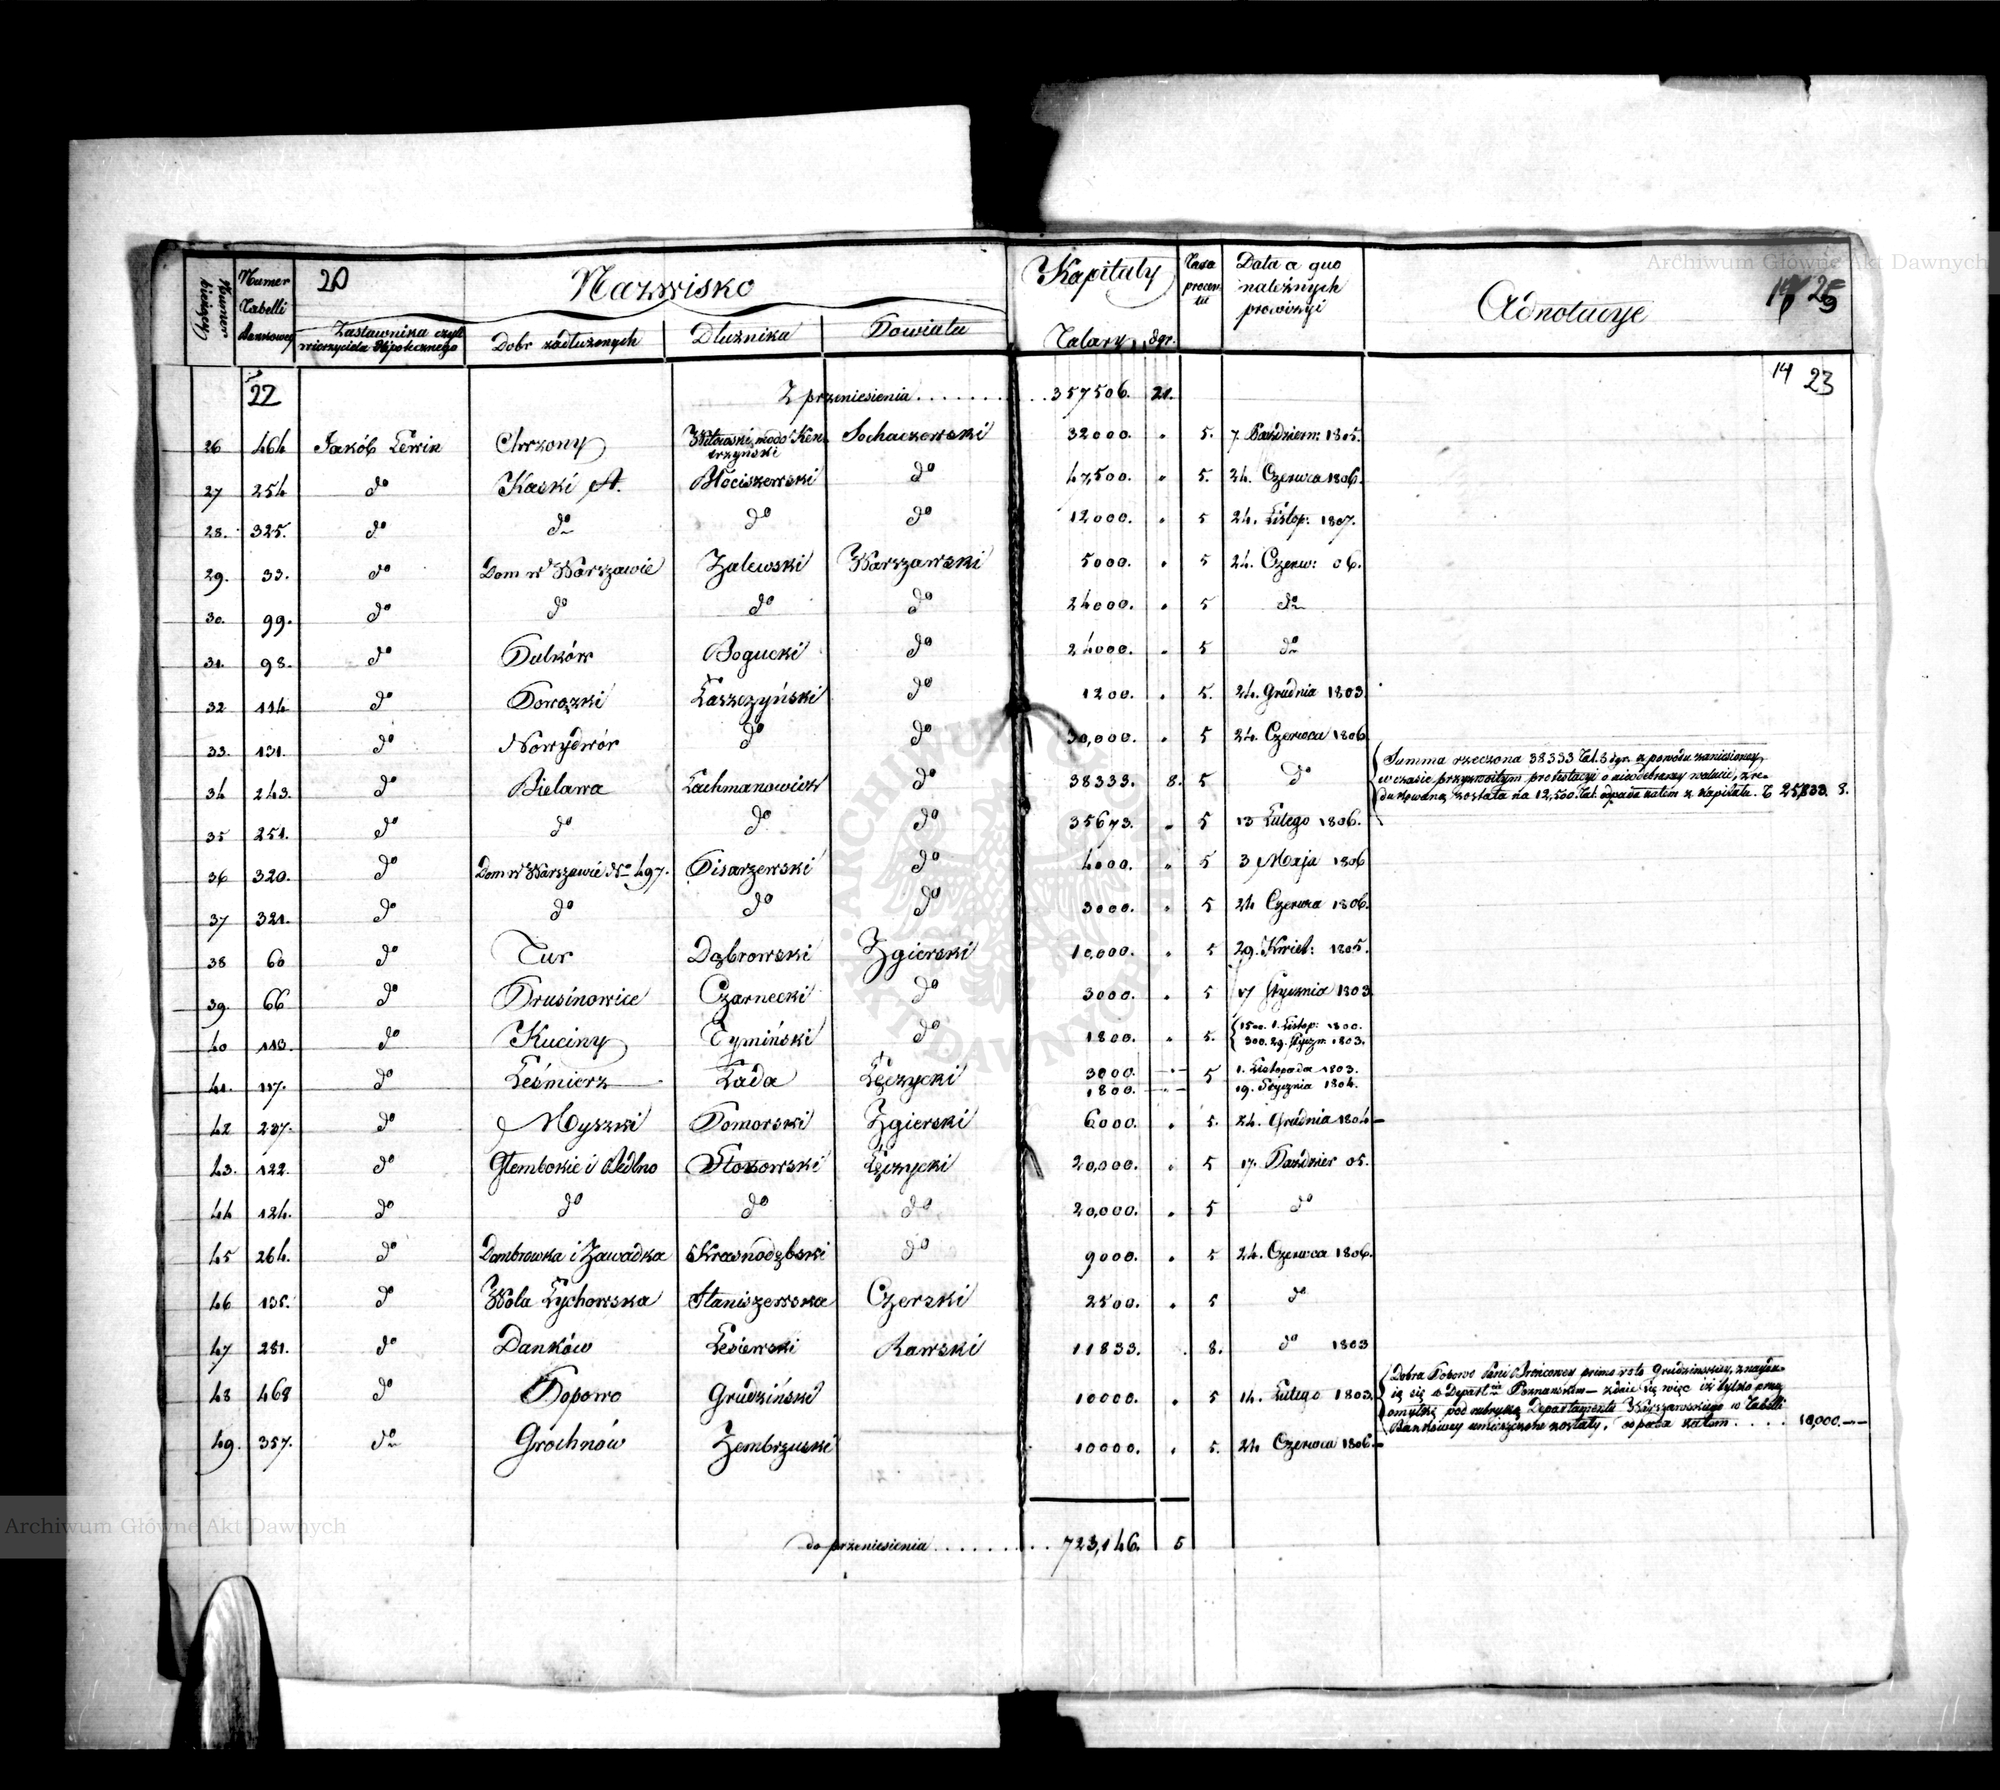 Archiwum Główne Akt Dawnych
20 Nazwisko Kapitały Adnotacye 23
Numer bieżący
Numer Tabelli Bankowey
Zastawnika czyli wierzyciela Hipotecznego
Dobr zadłużonych
Dłużnika
Powiatu
Talary dgr.
Taxa procentu
Data a quo należnych prowizyi
22 14 23
Z przeniesienia . . . . . . . . . 357506. 21.
26 464 Jakób Lewin Chrzony Sochaczewski 32000. " 5. 7. Październ: 1805.
27 254 do Kaski A. Błociszewski do 47,500. " 5. 24. Czerwca 1806.
28. 325. do do do do 12000. " 5 24. Listop: 1807.
29. 33. do Dom w Warszawie Zalewski Warszawski 5000. " 5 24. Czerw: 06.
30. 99. do do do do 24000. " 5 do
31. 98. do Pulków Bogucki do 24000. " 5 do
32 114 do Powązki Łaszczyński do 1200. " 5. 24. Grudnia 1803
33. 131. do Nowydwór do do 30,000. " 5 24. Czerwca 1806
34 243. do Bielawa Lachmanowicz do 38333. 8. 5 do
Summa rzeczona 38333 Tal. 8 dgr. z powodu zaniesioney
w czasie przyzwoitym protestacyi o nieodebraney walucie, zre-
dukowaną została na 12,500. Tal. odpada zatem z kapitału. T 25,833. 8.
35 251. do do do do 35673. " 5 13 Lutego 1806.
36 320. do Dom w Warszawie No 497. Pisarzewski do 4000. " 5 3 Maja 1806
37 321. do do do do 3000. " 5 24 Czerwca 1806.
38 60 do Tur Dąbrowski Zgierski 10,000. " 5 29. Kwiet: 1805.
39. 66 do Prusinowice Czarnecki do 3000. " 5 17 Stycznia 1803
40 113. do Kuciny Tymiński do 1800. " 5. 1500. 1. Listop: 1800.
300. 29. Stycz: 1803.
41. 117. do Leśmierz Łada Łęczycki 3000. 5 1. Listopada 1803.
1800. 19. Stycznia 1804.
42 237. do Myszki Pomorski Zgierski 6000. " 5. 24. Grudnia 1804
43. 122. do Głembokie i Jedlno Stokowski Łęczycki 20,000. " 5 17. Paździer 05.
44 124. do do do do 20,000. " 5 do
45 264. do Dombrowka i Zawadka Krasnodębski do 9000. " 5 24. Czerwca 1806.
46 135. do Wola Łychowska Staniszewska Czerski 2500. " 5 do
47 281. do Danków Lesiewski Rawski 11833. 8. do 1803
48 468 do Popowo Grudziński 10000. " 5 14. Lutego 1803.
Dobra Popowo Pani primo voto Grudzińskiey, znaydu-
ią się w Depart. Poznańskim — zdaie się więc iż tylko przez
omyłkę pod rubryką Departamentu Warszawskiego w Tabelli
Bankowey umieszczone zostały, odpada zatem . . . . 10,000.—
49. 357. do Grochnów Zembrzuski 10000. " 5. 24 Czerwca 1806
do przeniesienia . . . . . . . . 723,146. 5
Archiwum Główne Akt Dawnych